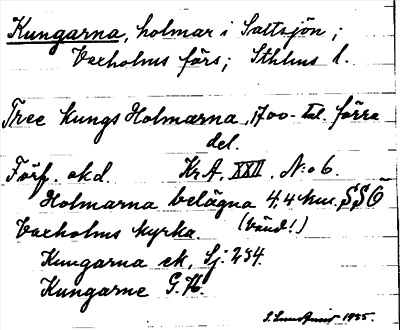 Kungarna, holmar i Saltsjön;
Vaxholms förs; Sthlms l.
Tree Kungs Holmarna, 1700-tal. förra
del.
Förf. okd. Kr.A. XXII. N:o 6.
Holmarna belägna 4,4 km. SSO
Vaxholms kyrka. (Vänd!)
Kungarna ek. Sj: 254.
Kungarne G.K.
1955.